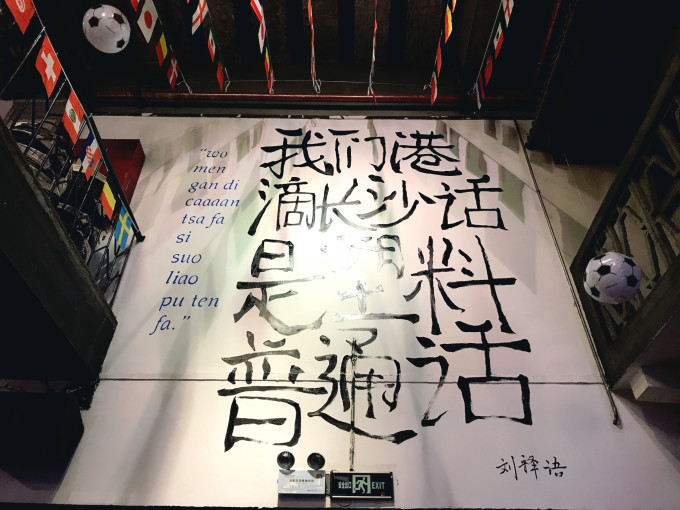 我们港
滴长沙话
是塑料
普通话
“wo
men
gan di
caaaan
tsa fa
si
suo
liao
pu ten
fa.”
刘释语
EXIT